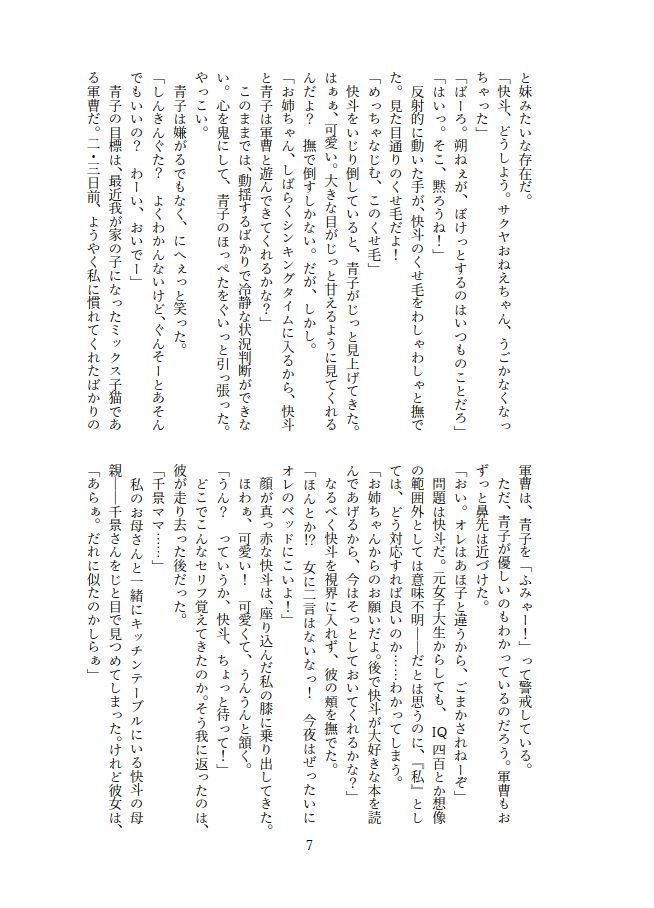 と妹みたいな存在だ。
「快斗、どうしよう。サクヤおねえちゃん、うごかなくなっ
ちゃった」
「ばーろ。朔ねぇが、ぼけっとするのはいつものことだろ」
「はいっ。そこ、黙ろうね！」
反射的に動いた手が、快斗のくせ毛をわしゃわしゃと撫で
た。見た目通りのくせ毛だよ！
「めっちゃなじむ、このくせ毛」
快斗をいじり倒していると、青子がじっと見上げてきた。
はぁぁ、可愛い。大きな目がじっと甘えるように見てくれる
んだよ？　撫で倒すしかない。だが、しかし。
「お姉ちゃん、しばらくシンキングタイムに入るから、快斗
と青子は軍曹と遊んできてくれるかな？」
このままでは、動揺するばかりで冷静な状況判断ができな
い。心を鬼にして、青子のほっぺたをぐいっと引っ張った。
やっこい。
青子は嫌がるでもなく、にへぇっと笑った。
「しんきんぐた？　よくわかんないけど、ぐんそーとあそん
でもいいの？　わーい、おいでー」
青子の目標は、最近我が家の子になったミックス子猫であ
る軍曹だ。二・三日前、ようやく私に慣れてくれたばかりの
軍曹は、青子を「ふみゃー！」って警戒している。
ただ、青子が優しいのもわかっているのだろう。軍曹もお
ずっと鼻先は近づけた。
「おい。オレはあほ子と違うから、ごまかされねーぞ」
問題は快斗だ。元女子大生からしても、IQ四百とか想像
の範囲外としては意味不明――だとは思うのに、『私』とし
ては、どう対応すれば良いのか……わかってしまう。
「お姉ちゃんからのお願いだよ。後で快斗が大好きな本を読
んであげるから、今はそっとしておいてくれるかな？」
なるべく快斗を視界に入れず、彼の頬を撫でた。
「ほんとか!?　女に二言はないなっ！　今夜はぜったいに
オレのベッドにこいよ！」
顔が真っ赤な快斗は、座り込んだ私の膝に乗り出してきた。
ほわぁ、可愛い！　可愛くて、うんうんと頷く。
「うん？　っていうか、快斗、ちょっと待って！」
どこでこんなセリフ覚えてきたのか。そう我に返ったのは、
彼が走り去った後だった。
「千景ママ……」
私のお母さんと一緒にキッチンテーブルにいる快斗の母
親――千景さんをじと目で見つめてしまった。けれど彼女は、
「あらぁ。だれに似たのかしらぁ」
7